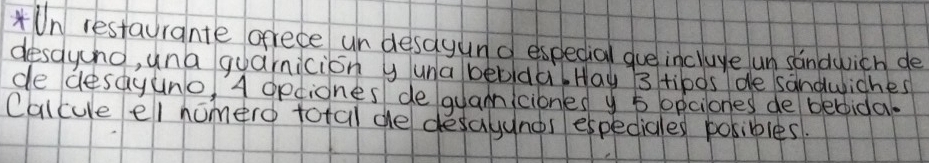 *Un restaurante ofrece un desayuno especial que incluye un sándwich de
desayuno, una guarnición y una bebida. Hay 3 tipos de sándwiches
de desayuno, 4 opciones de guarniciones y 5 opciones de bebida.
Calcule el número total de desayunos especiales posibles.